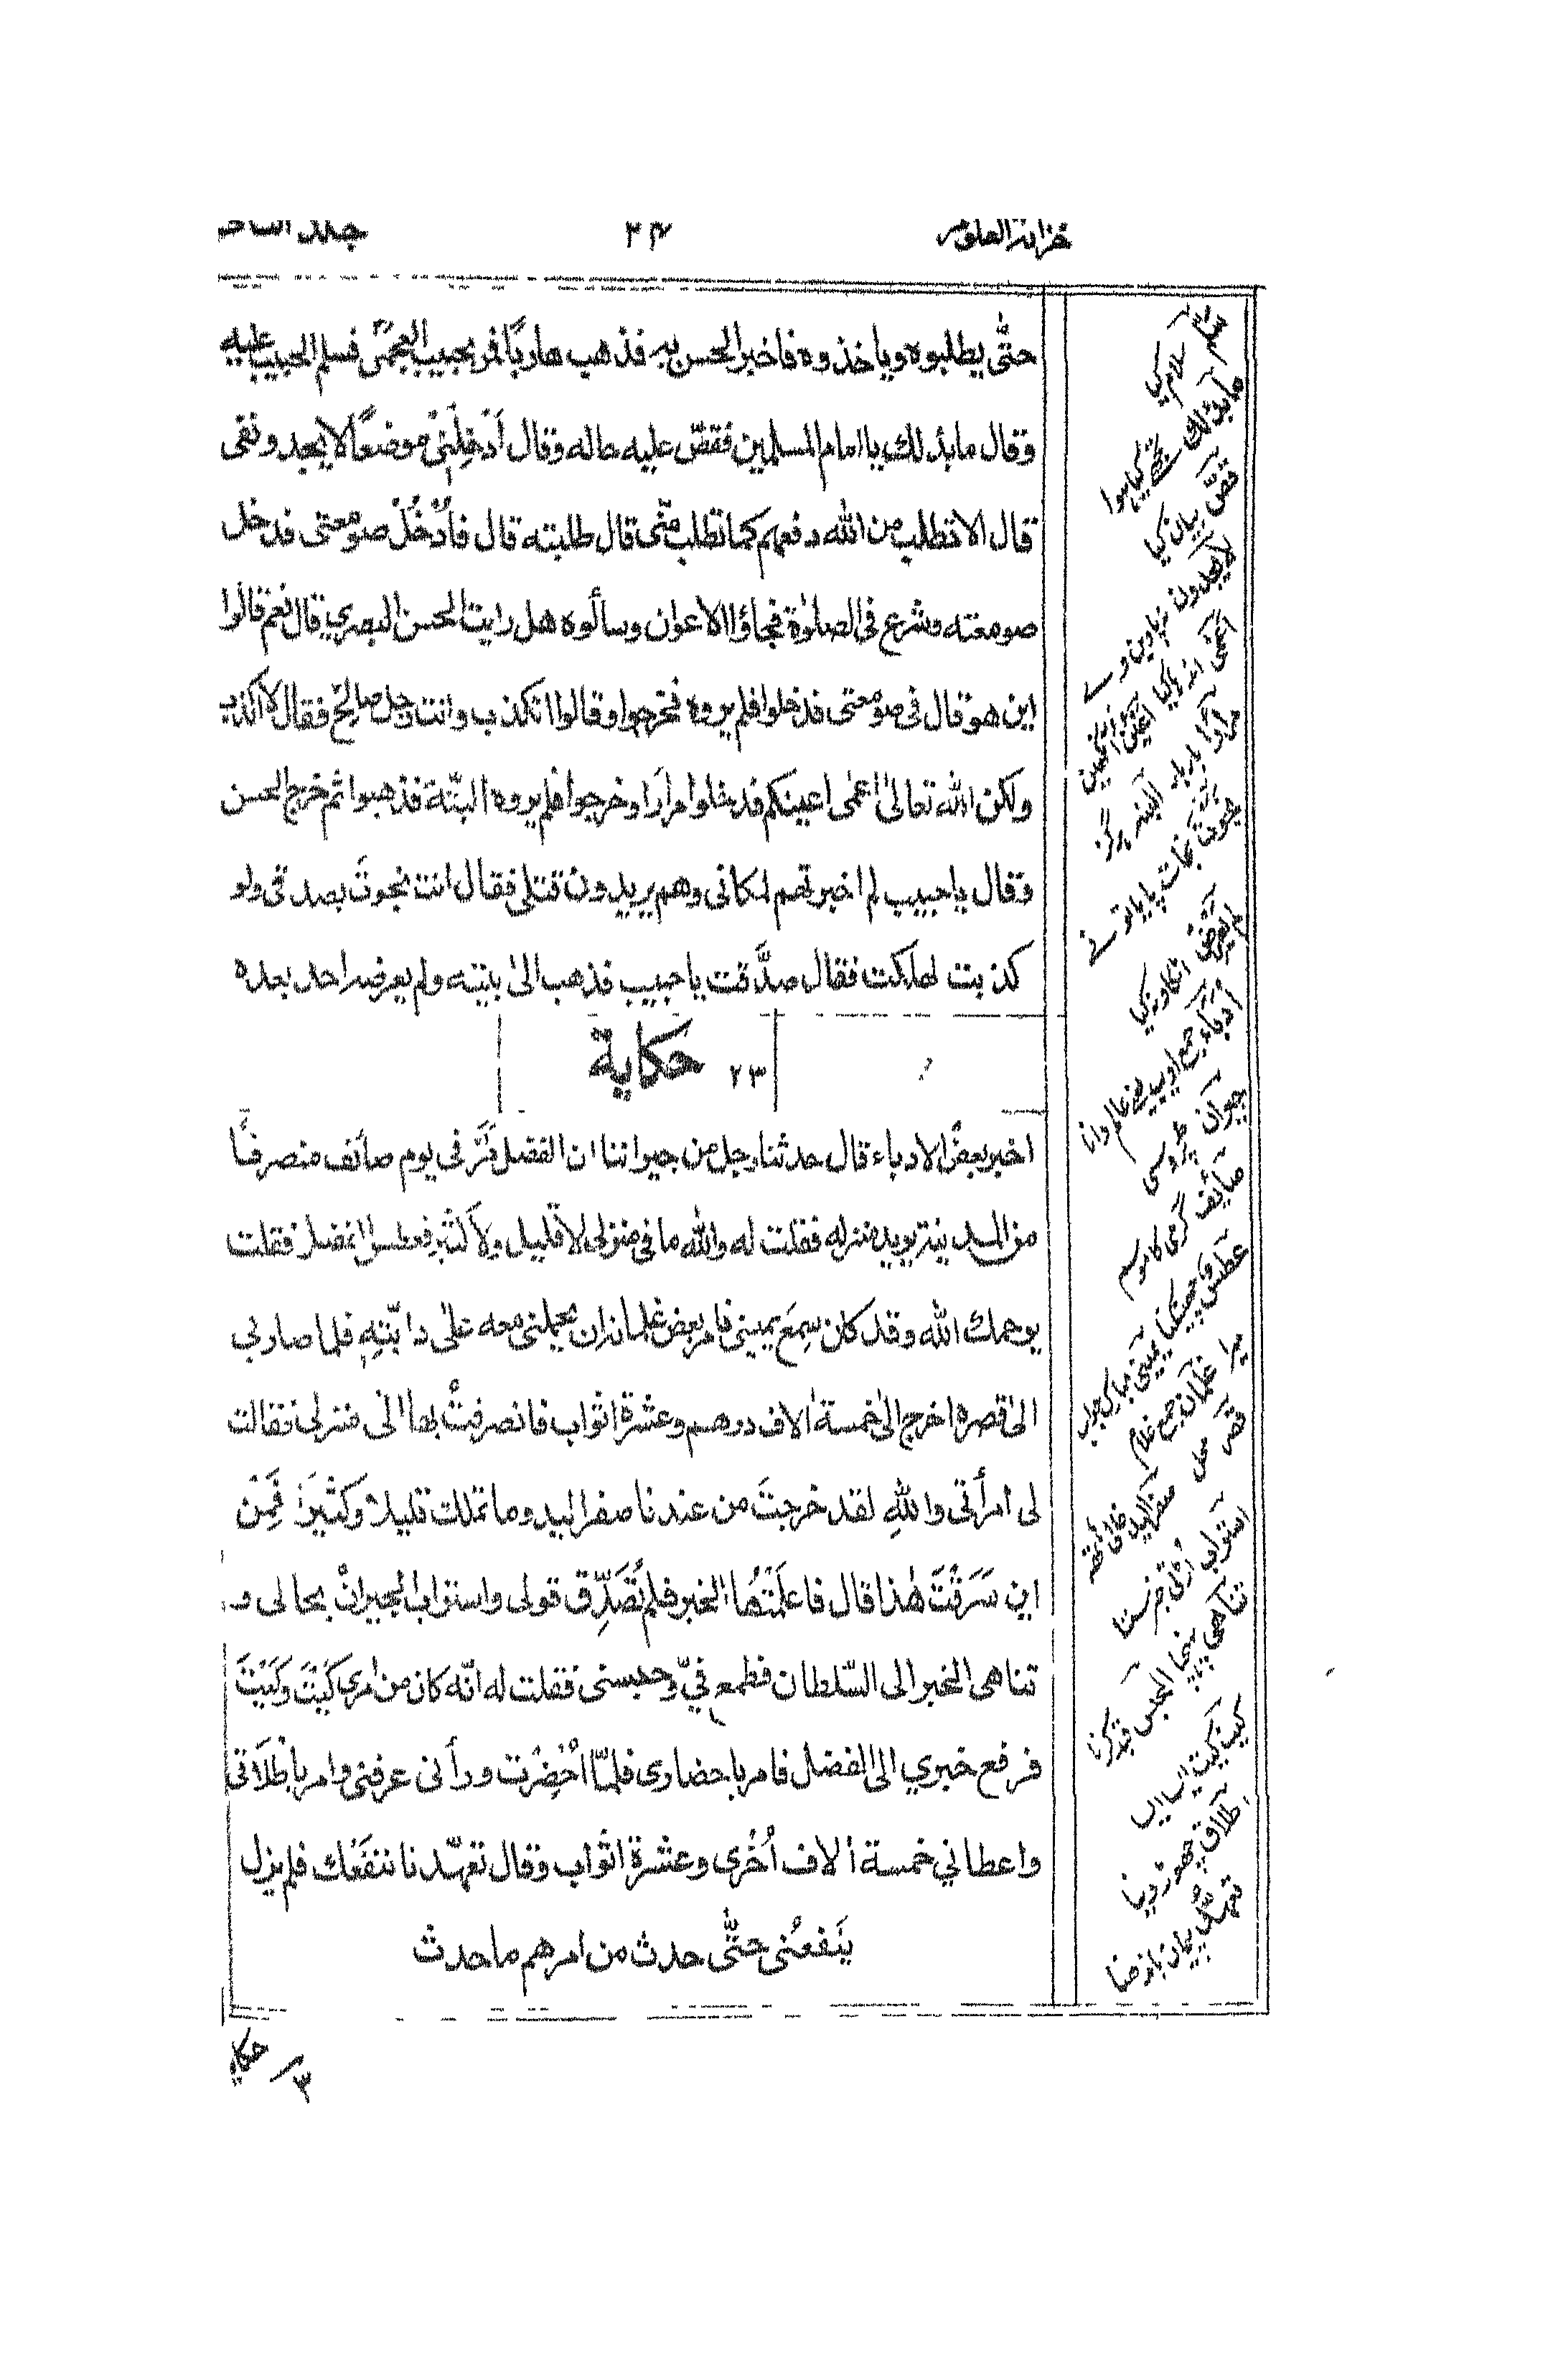 خزانة العلوم
٣٤
جلد
حتّٰى يطلبوه وياخذوه فاخبر الحسن به فذهب هاربًا فمر بحبيب العجمي فسلم الحبيب عليه
وقال مابدٔ لك يا امام المسلمين فقصّ عليه حاله وقال أدْخِلْنِیْ موضعًا لا يجدوننی
قال الا تطلب من الله دفعهم كما تطلب منّی قال طلبته قال فادْخُلْ صومعتی فدخل
صومعته وشرع فی الصلوٰة فجاؤا الاعوان وسألوه هل رايت الحسن البصري قال نعم قالوا
اين هو قال فی صومعتی فدخلوا فلم يروه فخرجوا وقالوا اتكذب وانت رجل صالح فقال لا اكذب
ولكن الله تعالىٰ اعمی اعينكم فدخلوا مرارًا وخرجوا فلم يروه البتّة فذهبوا ثم خرج الحسن
وقال يا حبيب لم اخبرتهم لمكانی وهم يريدون قتلی فقال انت نجوتَ بصدقی ولو
كذبت لهلكت فقال صدَّقت يا حبيب فذهب الىٰ بيته ولم يعرضه احد بعده
٢٣ حكاية
اخبر بعضُ الادباء قال حدثنا رجل من جيراننا ان الفضل مَرَّ فی يوم صائف منصرفًا
من المدينة يريد منزله فقلت له والله ما فی منزلی لا قليل ولا كثير فعطس الفضل فقلت
يرحمك الله وقد كان سِمِعَ يمينی فامر بعض غلمانه ان يحملنی معه علىٰ دابّتِهٖ فلما صار بی
الىٰ قصره اخرج الیٰ خمسة اٰلاف درهم وعشرة اثواب فانصرفتُ بها الی منزلی فقالت
لی امرأتی واللهِ لقد خرجتَ من عندنا صفر اليد وما تملك قليلا وكثيرًا فَمِنْ
اين سَرَقْتَ هٰذا قال فاعلَمْتُها الخبر فلم تُصَدِّق قولی واستراب الجيرانُ بحالی و
تناهی الخبر الی السّلطان فطمع فيّ وحبسنی فقلت له انّه كان من امری كَيْتَ وَكَيْتَ
فرفع خبري الی الفضل فامر باحضاری فلمّا اُحْضِرْت ورأنی عرفنی وامر باِطْلَاقی
واعطاني خمسة اٰلاف اُخْرى وعشرة اثواب وقال تعهّدنا ننفَعْك فلم يزل
يَنفعُنی حتّٰى حدث من امرهم ماحدث
سَلَّم سلام كيا
مابدٔ لك تجھے كيا ہوا
قصّ بيان كيا
لا يجدون نہ پاوين وے
اعمی اندھا كيا اعين آنكھين
مرارًا بار بار البتہ ہرگز
نجوت نجات پايا تونے
ادباء جمع اديب يعنے عالم دانا
جيران پڑوسی
صائف گرمی كا موسم
عطس چھينكنا
غلمان جمع غلام
قصر محل صفر اليد خالی ہاتھ
تناهی پہنچا الحبس قيد كرنا
كيت كيت ايسا ايسا
اطلاق چھوڑ دينا
تعهد پيمان باندھنا